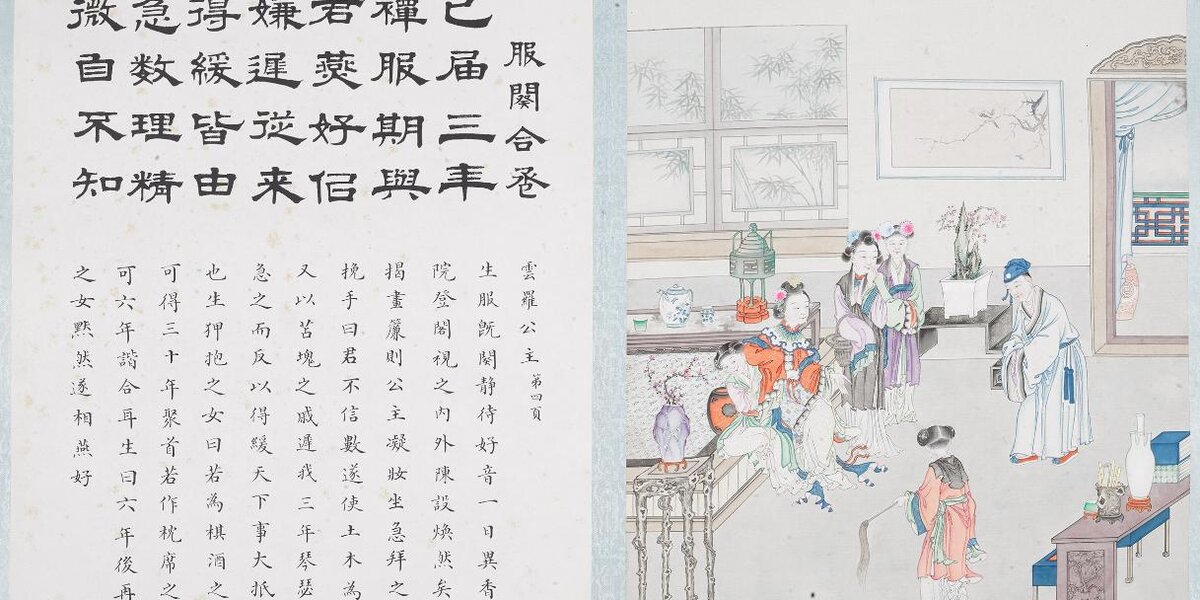 服闋合卺
已届三年
禫服期與
君燕好侣
嫌遲從来
得緩皆由
急数理精
微自不知
雲羅公主 第四頁
生服旣闋静待好音一日異香
院登閣視之内外陳設煥然矣
揭畫簾則公主凝妝坐急拜之
挽手曰君不信數遂使土木為
又以苫塊之戚遲我三年琴瑟
急之而反以得緩天下事大抵
也生狎抱之女曰若為棋酒之
可得三十年聚首若作枕席之
可六年諧合耳生曰六年後再
之女黙然遂相燕好